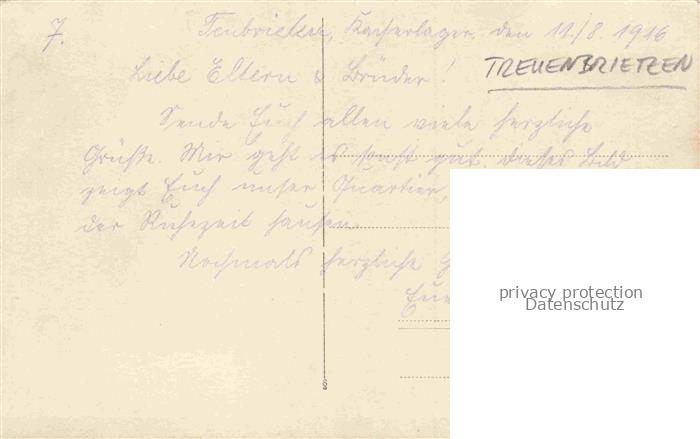 7.
Kaiserlager, den 11/8. 1916
TREUENBRIETZEN
Liebe Eltern & Brüder!
Sende Euch allen viele herzliche
Grüße. Mir geht es sonst gut. dieses Bild
zeigt Euch unser Quartier,
der Ruhezeit hausen.
Nochmals herzliche G
privacy protection
Datenschutz